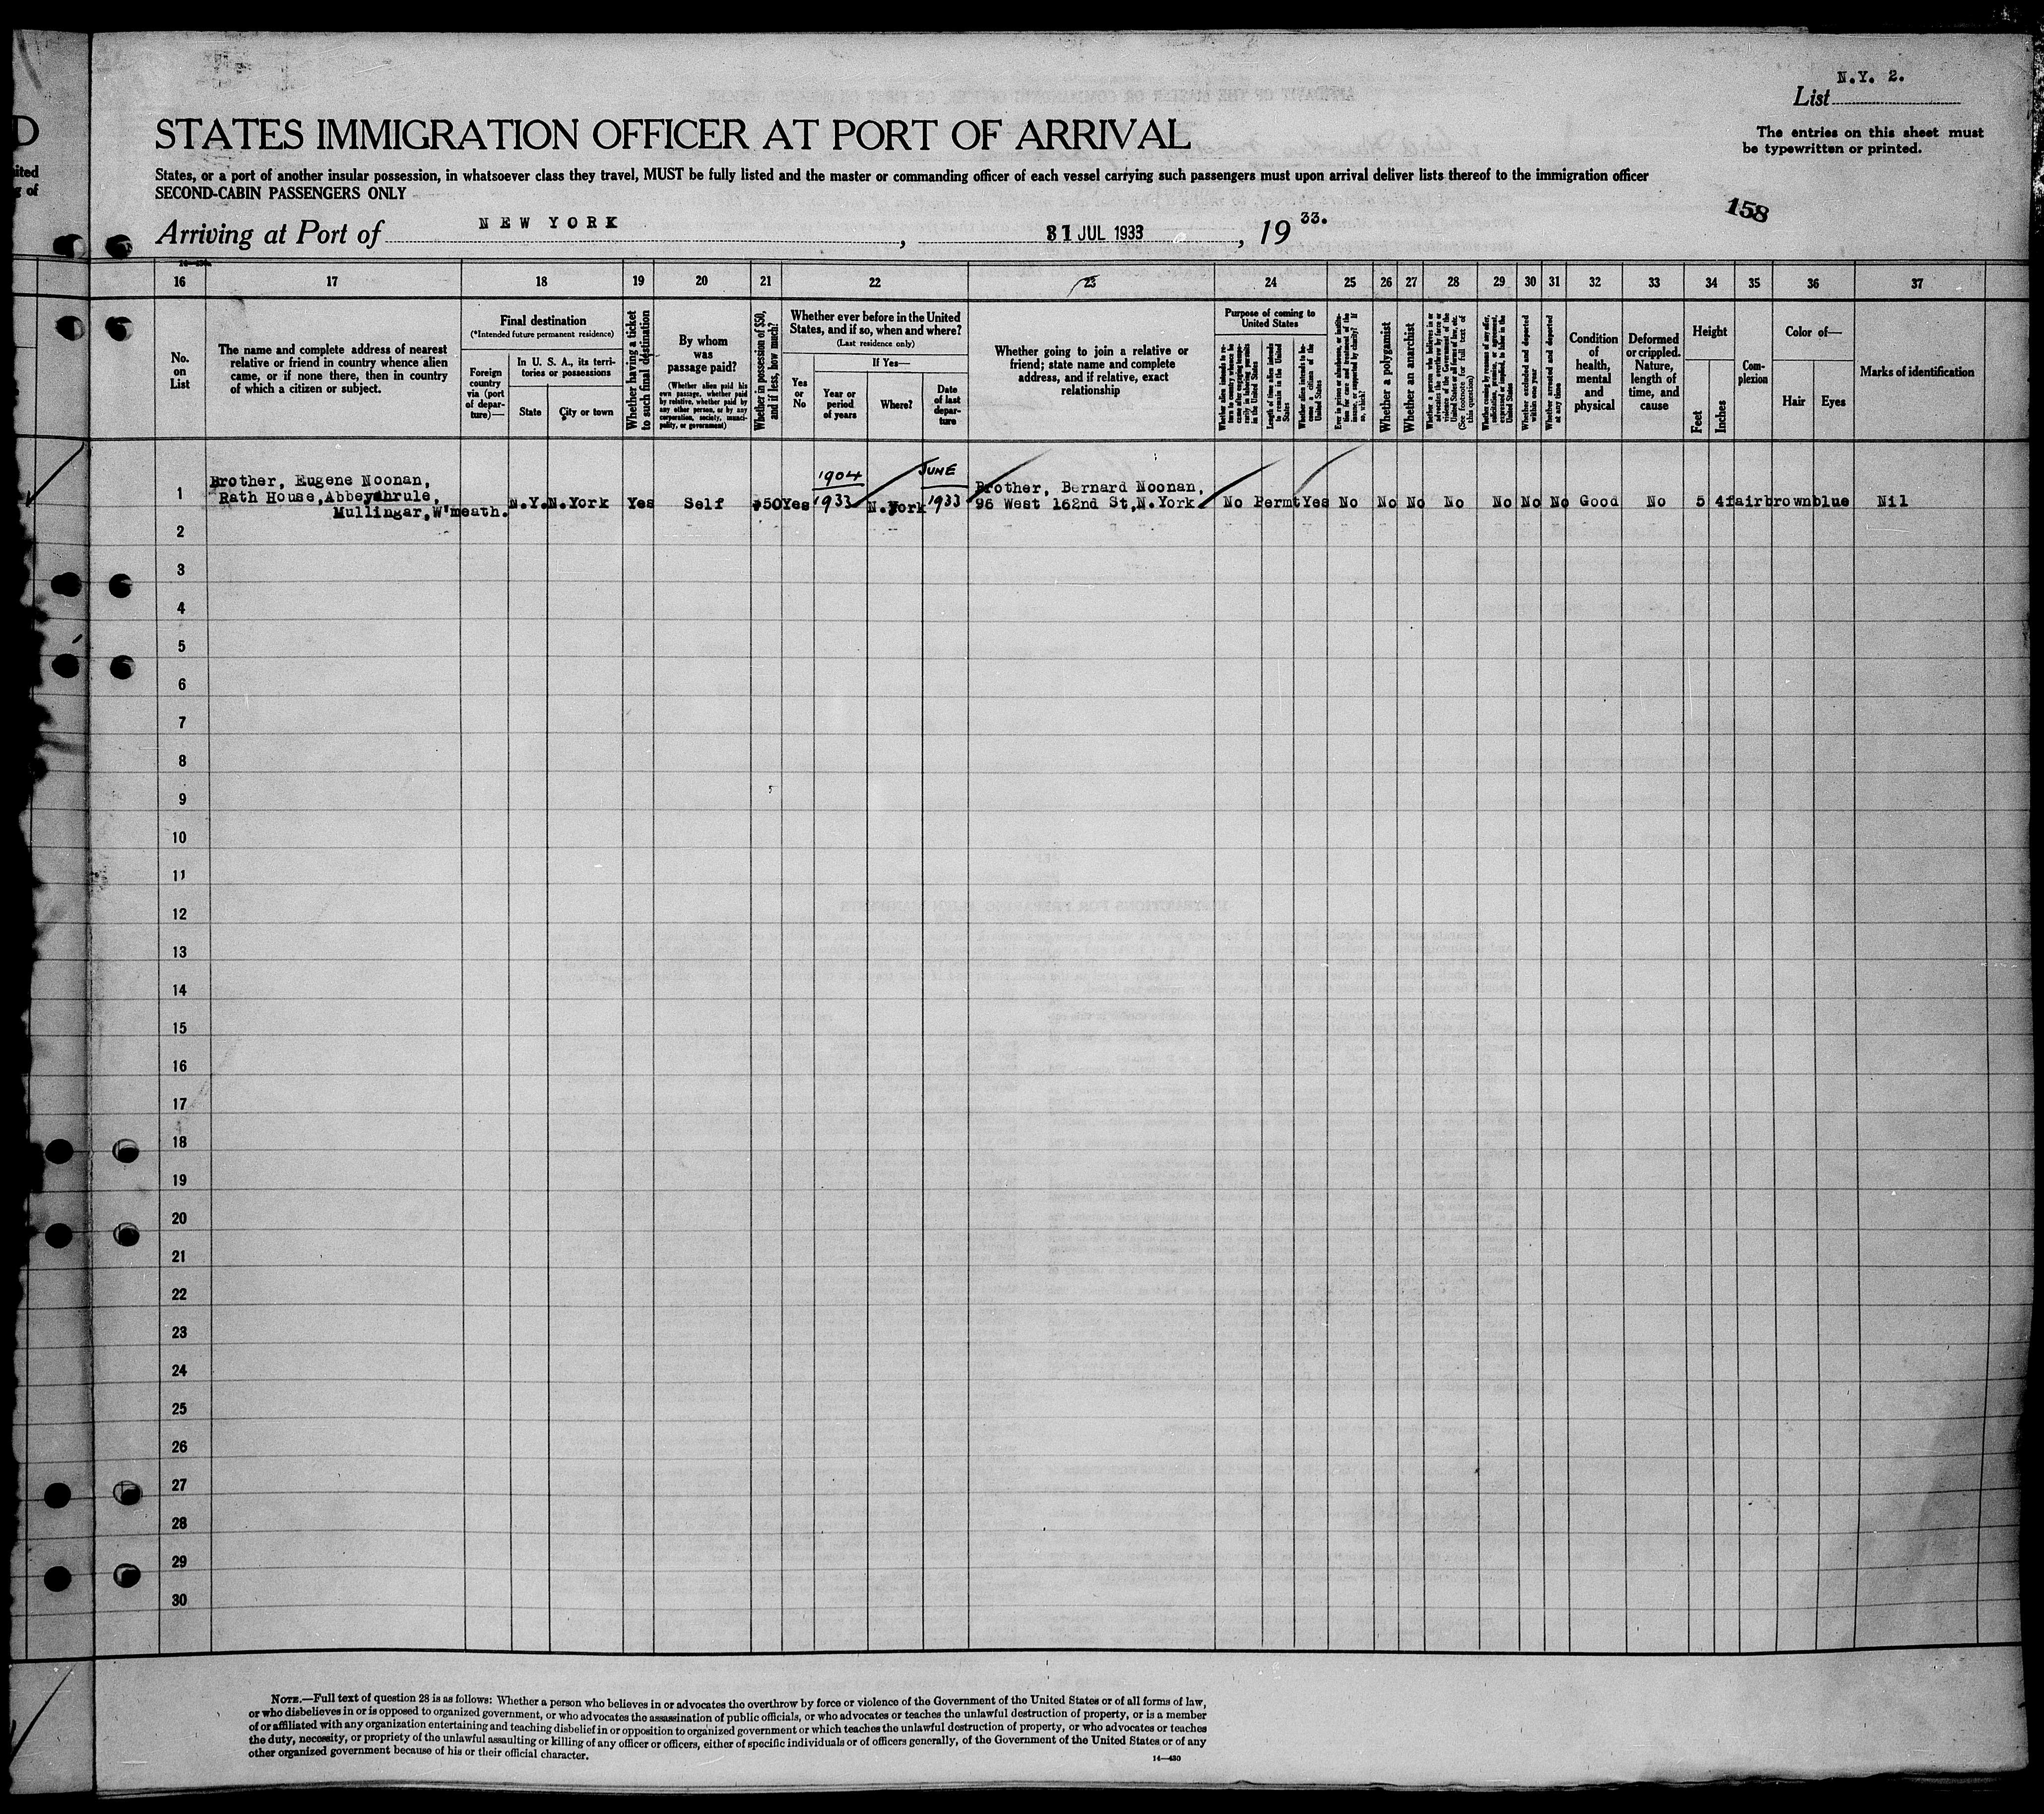 D
ited
g of
N.Y. 2.
List
STATES IMMIGRATION OFFICER AT PORT OF ARRIVAL
The entries on this sheet must
be typewritten or printed.
States, or a port of another insular possession, in whatsoever class they travel, MUST be fully listed and the master or commanding officer of each vessel carrying such passengers must upon arrival deliver lists thereof to the immigration officer
SECOND-CABIN PASSENGERS ONLY
158
Arriving at Port of NEW YORK, 31 JUL 1933, 19 33.
16 17 18 19 20 21 22 23 24 25 26 27 28 29 30 31 32 33 34 35 36 37
No.
on
List
The name and complete address of nearest
relative or friend in country whence alien
came, or if none there, then in country
of which a citizen or subject.
Final destination
(*Intended future permanent residence)
Foreign
country
via (port
of depar-
ture)—
In U. S. A., its terri-
tories or possessions
State
City or town
Whether having a ticket
to such final destination
By whom
was
passage paid?
(Whether alien paid his
own passage, whether paid
by relative, whether paid by
any other person, or by any
corporation, society, munici-
pality, or government)
Whether in possession of $50,
and if less, how much?
Whether ever before in the United
States, and if so, when and where?
(Last residence only)
Yes
or
No
If Yes—
Year or
period
of years
Where?
Date
of last
depar-
ture
Whether going to join a relative or
friend; state name and complete
address, and if relative, exact
relationship
Purpose of coming to
United States
Whether alien intends to re-
turn to country whence he
came after engaging tempo-
rarily in laboring pursuits
in the United States
Length of time alien intends
to remain in the United
States
Whether alien intends to be-
come a citizen of the
United States
Ever in prison or almshouse, or institu-
tion for care and treatment of the
insane, or supported by charity? If
so, which?
Whether a polygamist
Whether an anarchist
Whether a person who believes in or
advocates the overthrow by force or
violence of the Government of the
United States or all forms of law, etc.
(See footnote for full text of
this question)
Whether coming by reason of any offer,
solicitation, promise, or agreement,
expressed or implied, to labor in the
United States
Whether excluded and deported
within one year
Whether arrested and deported
at any time
Condition
of
health,
mental
and
physical
Deformed
or crippled.
Nature,
length of
time, and
cause
Height
Feet
Inches
Com-
plexion
Color of—
Hair
Eyes
Marks of identification
1904 JUNE
Brother, Eugene Noonan,
Brother, Bernard Noonan,
Rath House, Abbeyshrule,
1 Mullingar, W'meath. N.Y. N.York Yes Self $50 Yes 1933 N.York 1933 96 West 162nd St, N.York. No Permt Yes No No No No No No No Good No 5 4 fair brown blue Nil
2
3
4
5
6
7
8
9
10
11
12
13
14
15
16
17
18
19
20
21
22
23
24
25
26
27
28
29
30
NOTE.—Full text of question 28 is as follows: Whether a person who believes in or advocates the overthrow by force or violence of the Government of the United States or of all forms of law,
or who disbelieves in or is opposed to organized government, or who advocates the assassination of public officials, or who advocates or teaches the unlawful destruction of property, or is a member
of or affiliated with any organization entertaining and teaching disbelief in or opposition to organized government or which teaches the unlawful destruction of property, or who advocates or teaches
the duty, necessity, or propriety of the unlawful assaulting or killing of any officer or officers, either of specific individuals or of officers generally, of the Government of the United States or of any
other organized government because of his or their official character.
14—430